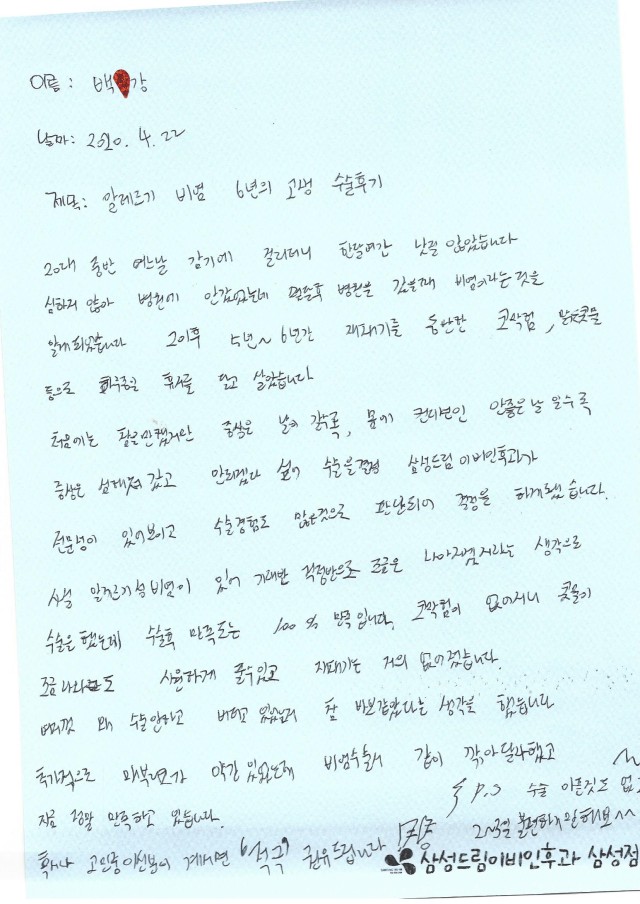 이름 : 백 강
날짜 : 2020. 4. 22
제목 : 알레르기 비염 6년의 고생 수술후기
20대 중반 어느날 감기에 걸리더니 한달여간 낫질 않았습니다
심하지 않아 병원에 안갔었는데 몇달후 병원을 갔을때 비염이라는것을
알게되었습니다 그이후 5년~6년간 재채기를 동반한 코막힘, 콧물
등으로 휴지를 달고 살았습니다
처음에는 참을만했지만 증상은 날이 갈수록, 몸이 컨디션인 안좋은날 일수록
증상은 심해져 갔고 안되겠다 싶어 수술을결정 삼성드림이비인후과가
전문성이 있어보이고 수술경험도 많은것으로 판단되어 결정을 하게됐습니다.
사실 알레르기성비염이 있어 기대반 걱정반으로 조금은 나아지겠지라는 생각으로
수술을 했는데 수술후 만족도는 100% 만족입니다. 코막힘이 없어지니 콧물이
조금나와도 시원하게 풀수있고 재채기는 거의 없어졌습니다.
여태껏 왜 수술안하고 버티고 있었는지 참 바보같았다는 생각을 했습니다
추가적으로 약간 있었는데 비염수술시 같이 깎아달라했고
지금 정말 만족하고 있습니다.
혹시나 고민중이신분이 계시면 "적극" 권유드립니다
P.S 수술 아픈것도 없고
2~3일 불편하지만 해보^^
삼성드림이비인후과 삼성점